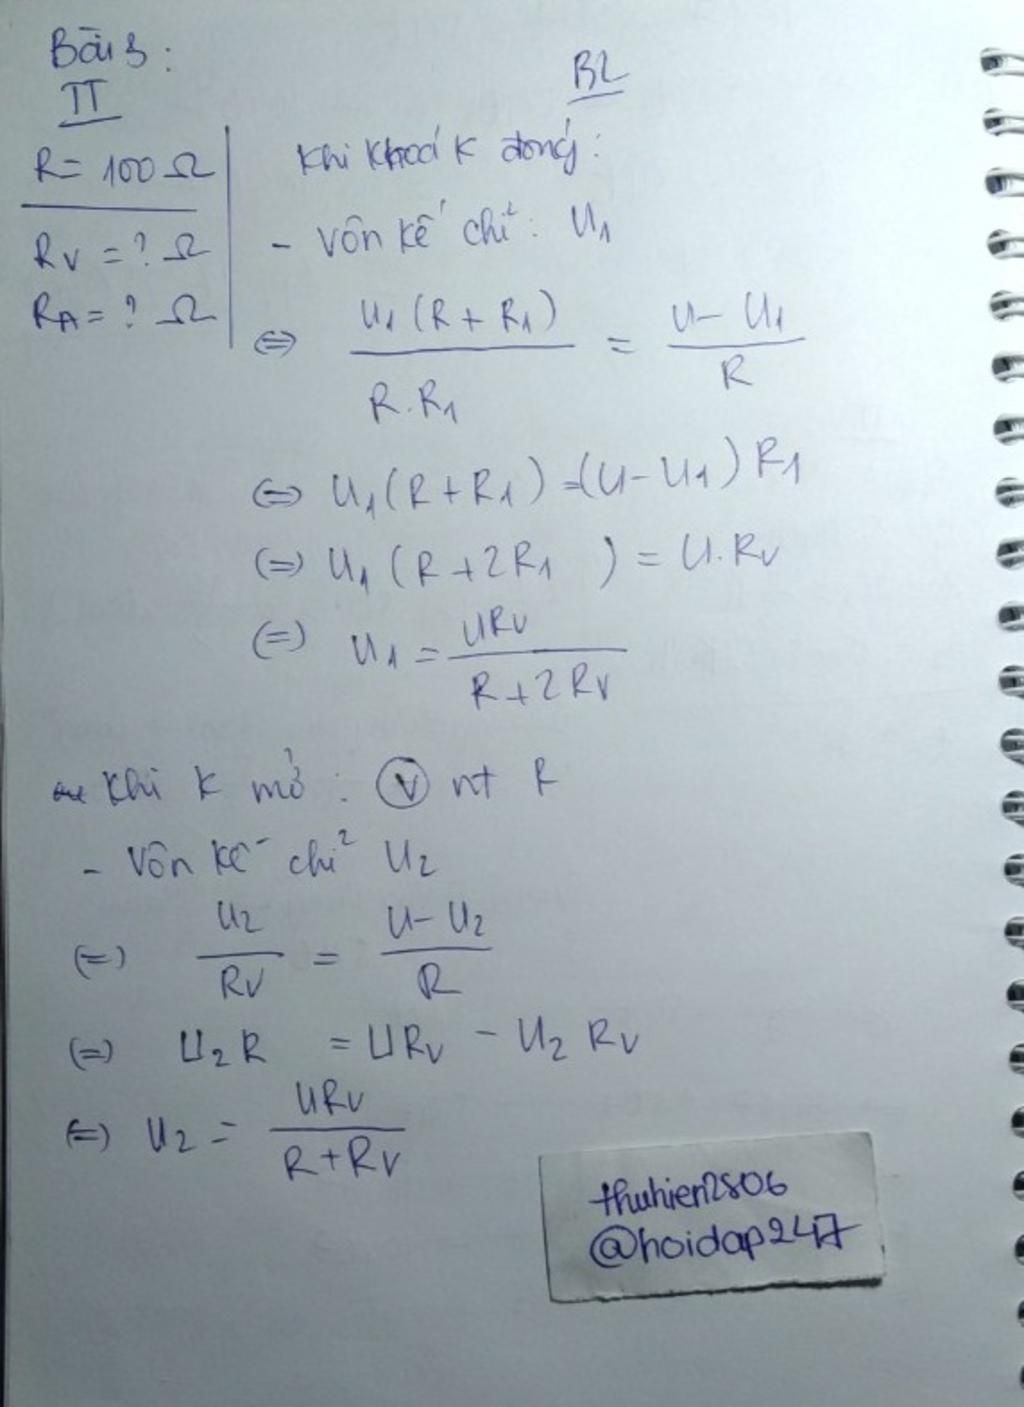 Bài 3:
TT
R = 100 Ω
RV = ? Ω
RA = ? Ω
Khi khoá K đóng:
- Vôn kế chỉ: U1
⇔ U1 (R + R1) / R.R1 = U - U1 / R
⇔ U1 (R + R1) = (U - U1) R1
(=) U1 (R + 2R1 ) = U.RV
(=) U1 = URV / R + 2RV
Khi K mở: V nt R
- Vôn kế chỉ U2
(=) U2 / RV = U - U2 / R
(=) U2R = URV - U2 RV
(=) U2 = URV / R + RV
thuhien2806
@hoidap247